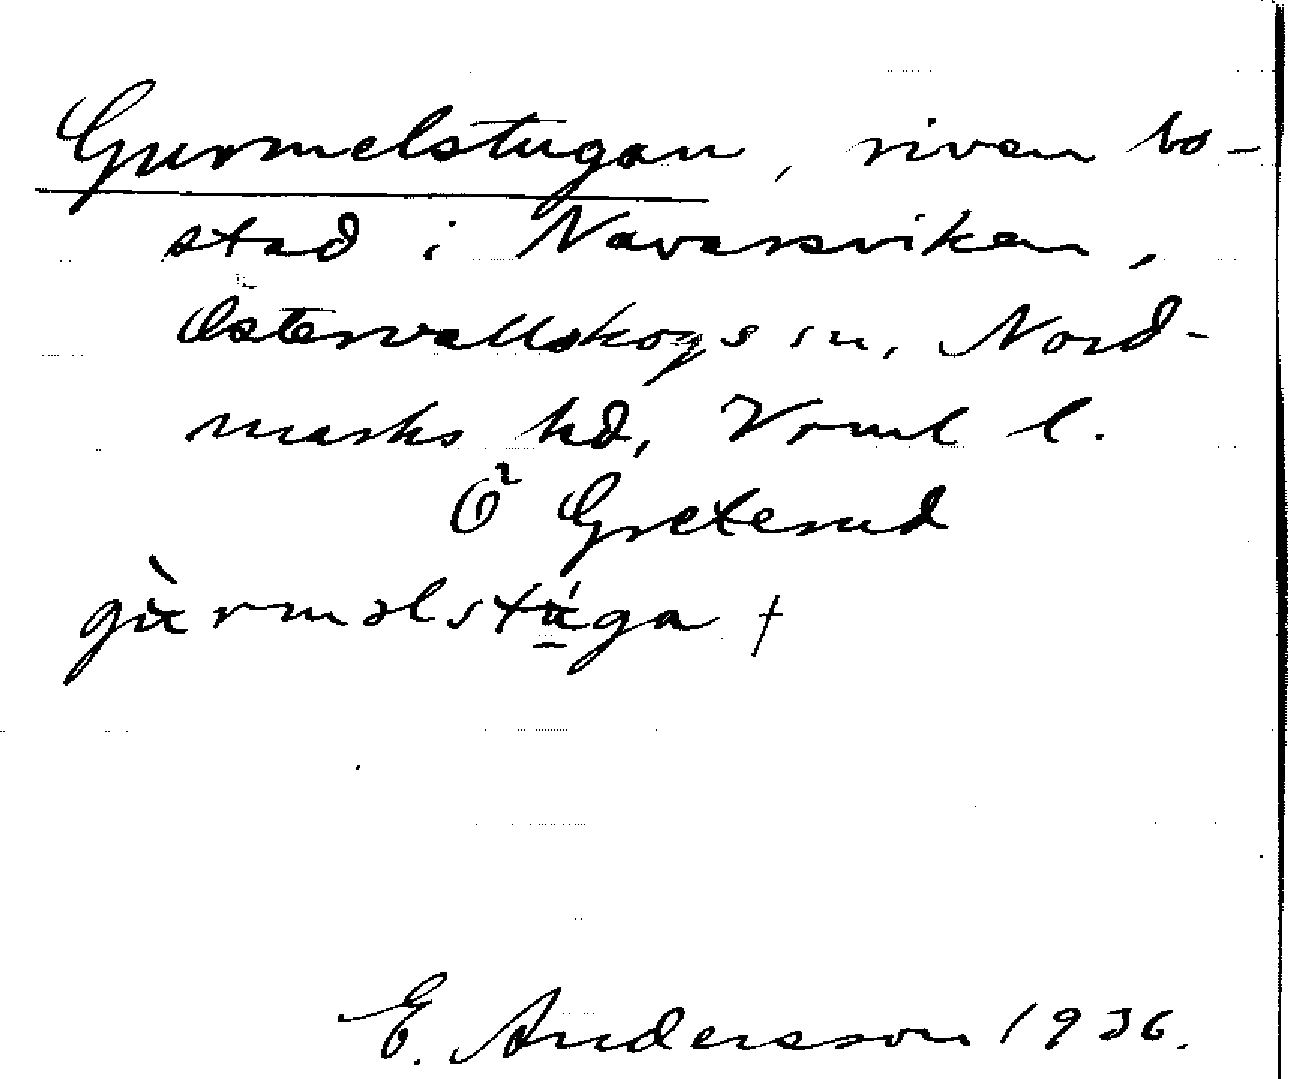 Gurmelstugan, riven bo-
stad i Navarsviken,
Östervallskogs sn, Nord-
marks hd, Vrml l.
Ö Greterud
gùrməlstúga †
E. Andersson 1936.